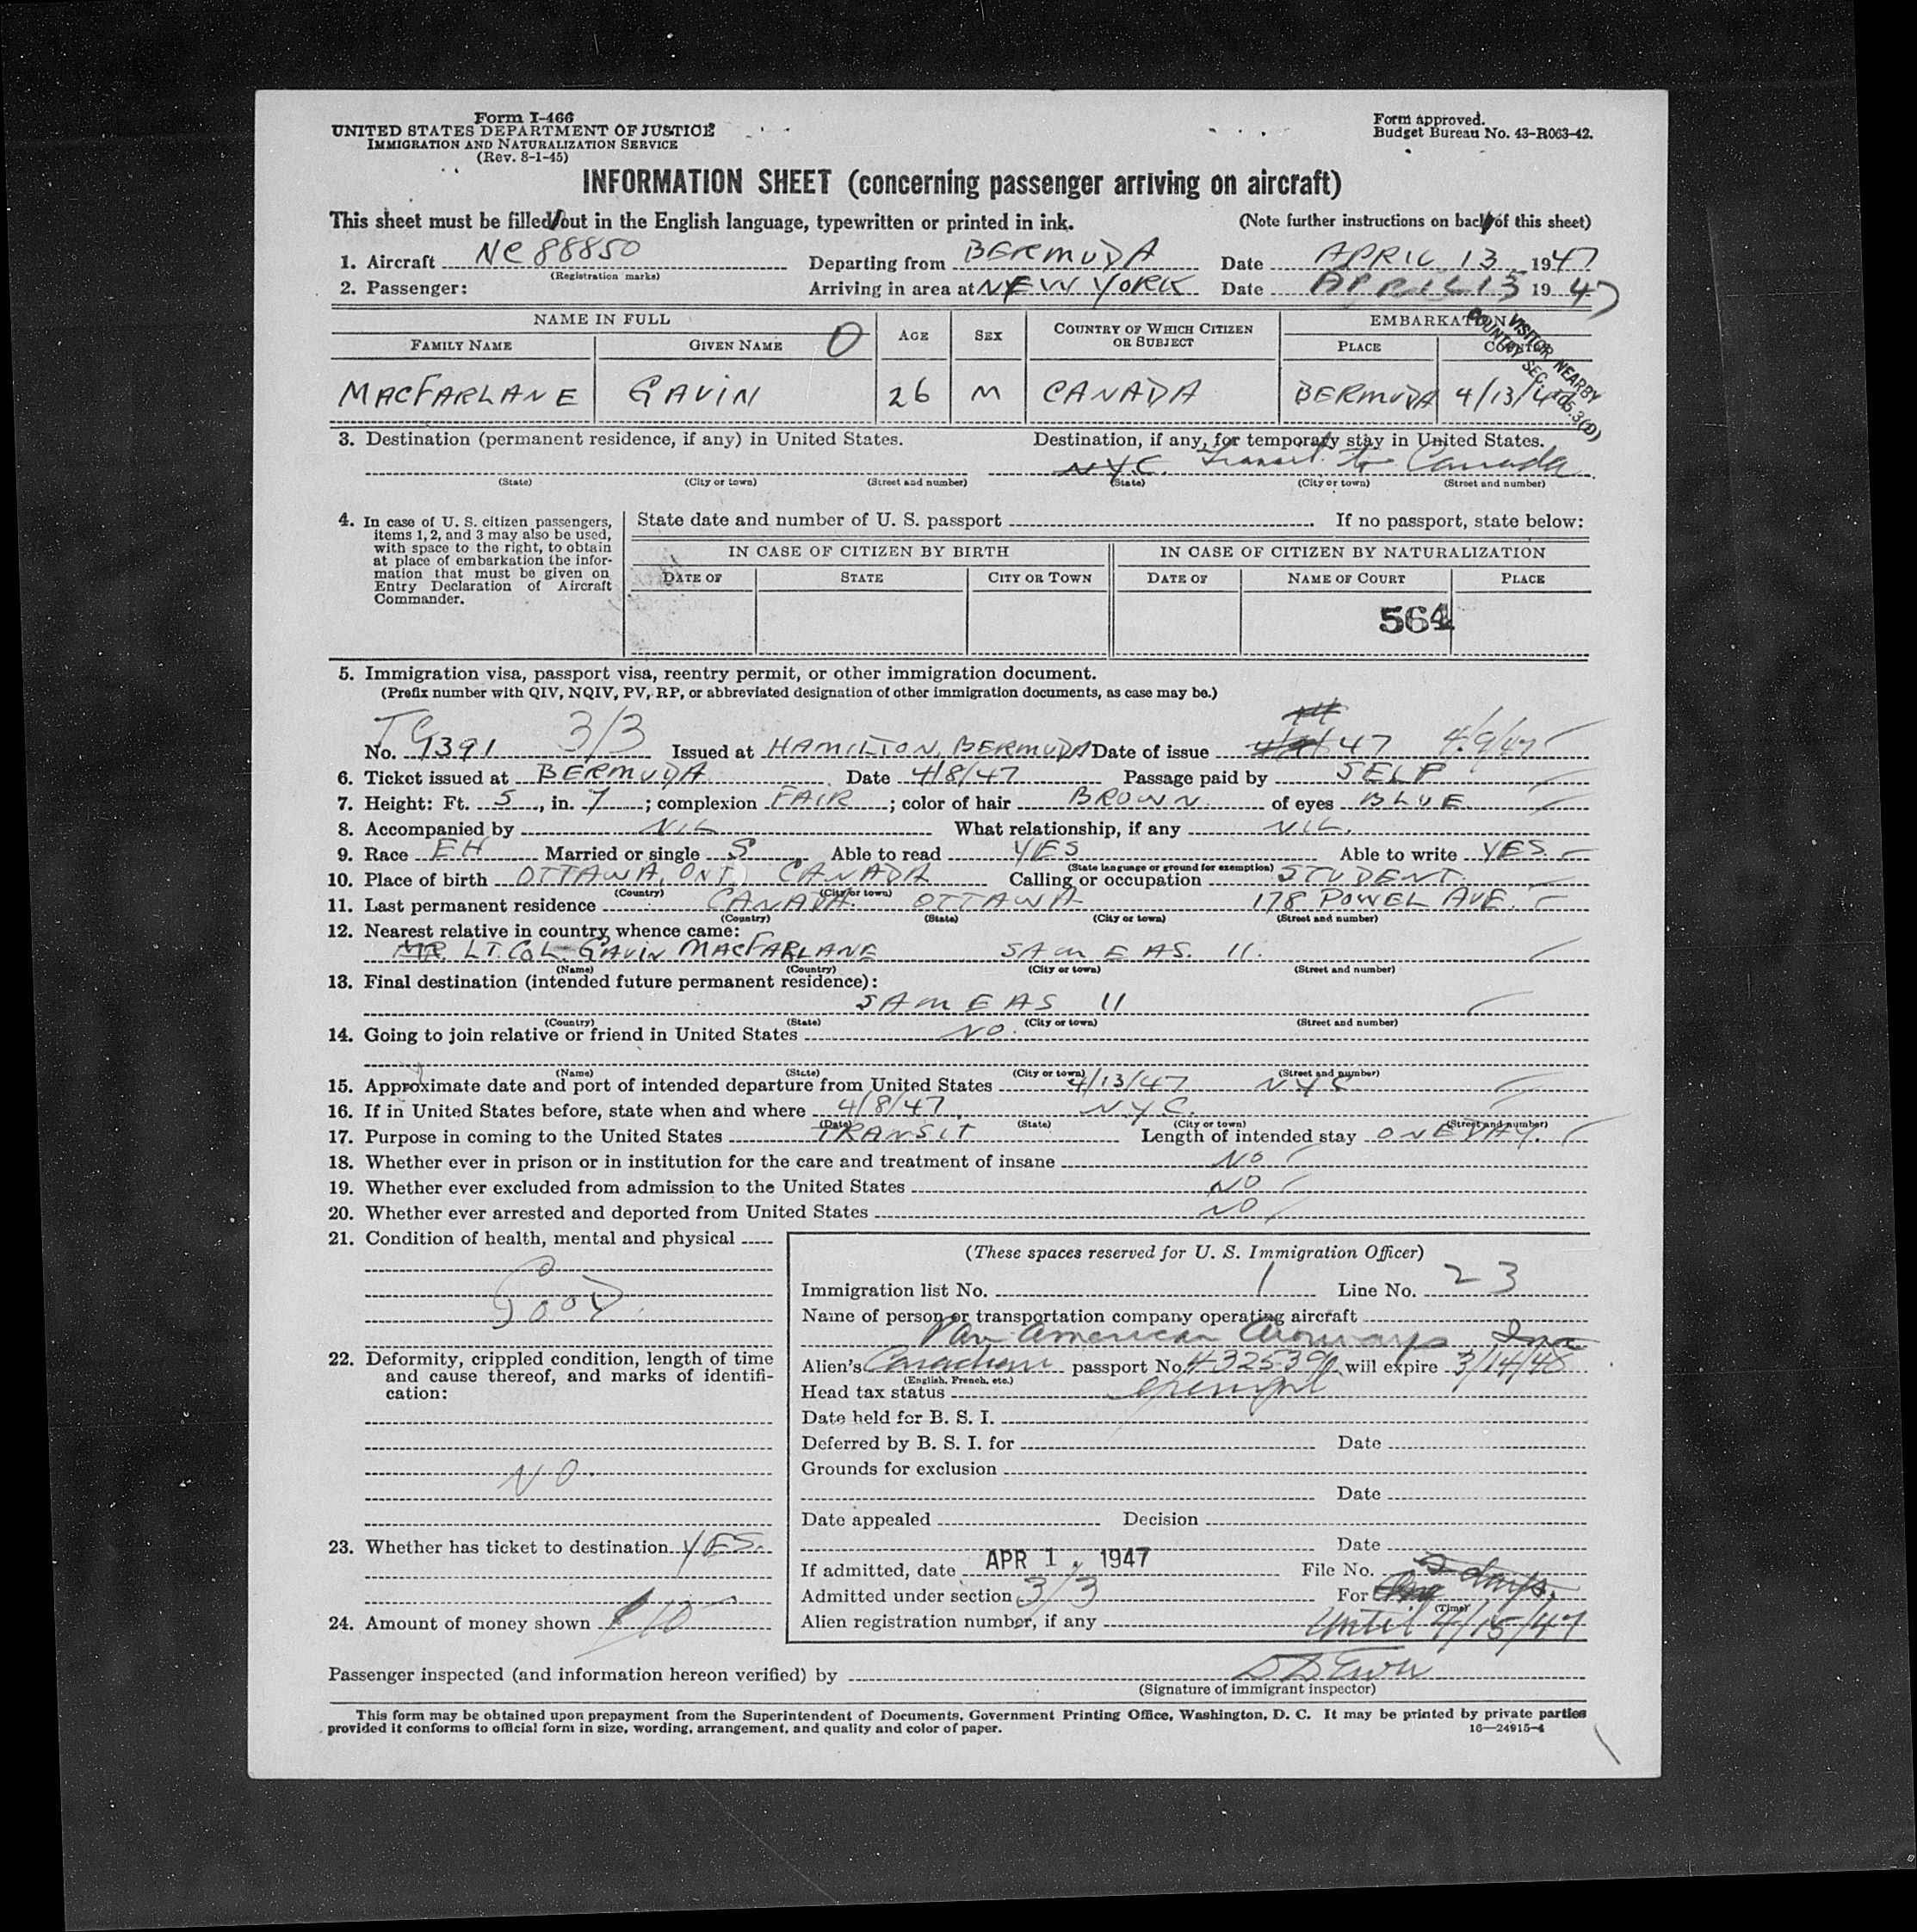 Form I-466
UNITED STATES DEPARTMENT OF JUSTICE
IMMIGRATION AND NATURALIZATION SERVICE
(Rev. 8-1-45)
Form approved.
Budget Bureau No. 43-R063-42.
INFORMATION SHEET (concerning passenger arriving on aircraft)
This sheet must be filled out in the English language, typewritten or printed in ink. (Note further instructions on back of this sheet)
1. Aircraft NC 88850 Departing from BERMUDA Date APRIL 13 1947
(Registration marks)
2. Passenger: Arriving in area at NEW YORK Date APRIL 13 1947
NAME IN FULL O AGE SEX COUNTRY OF WHICH CITIZEN OR SUBJECT EMBARKATION
FAMILY NAME GIVEN NAME PLACE
VISITOR NEARBY
COUNTRY SEC.
MACFARLANE GAVIN 26 M CANADA BERMUDA 4/13/47
3. Destination (permanent residence, if any) in United States. Destination, if any, for temporary stay in United States.
N.Y.C. Transit to Canada
(State) (City or town) (Street and number) (State) (City or town) (Street and number)
4. In case of U. S. citizen passengers, items 1, 2, and 3 may also be used, with space to the right, to obtain at place of embarkation the information that must be given on Entry Declaration of Aircraft Commander.
State date and number of U. S. passport If no passport, state below:
IN CASE OF CITIZEN BY BIRTH IN CASE OF CITIZEN BY NATURALIZATION
DATE OF STATE CITY OR TOWN DATE OF NAME OF COURT PLACE
564
5. Immigration visa, passport visa, reentry permit, or other immigration document.
(Prefix number with QIV, NQIV, PV, RP, or abbreviated designation of other immigration documents, as case may be.)
No. 9391 3/3 Issued at HAMILTON, BERMUDA Date of issue 47 4/9/47
6. Ticket issued at BERMUDA Date 4/8/47 Passage paid by SELF
7. Height: Ft. 5, in. 7; complexion FAIR; color of hair BROWN of eyes BLUE
8. Accompanied by NIL What relationship, if any NIL.
9. Race EH Married or single S Able to read YES Able to write YES
(State language or ground for exemption)
10. Place of birth OTTAWA, ONT CANADA Calling or occupation STUDENT
(Country) (City or town)
11. Last permanent residence CANADA OTTAWA 178 POWEL AVE.
(Country) (State) (City or town) (Street and number)
12. Nearest relative in country whence came:
MR LT. COL. GAVIN MACFARLANE SAME AS. 11.
(Name) (Country) (City or town) (Street and number)
13. Final destination (intended future permanent residence):
SAME AS 11
(Country) (State) (City or town) (Street and number)
14. Going to join relative or friend in United States NO.
(Name) (State) (City or town) (Street and number)
15. Approximate date and port of intended departure from United States 4/13/47 NYC
16. If in United States before, state when and where 4/8/47. N.Y.C.
(Date) (State) (City or town) (Street and number)
17. Purpose in coming to the United States TRANSIT Length of intended stay ONE DAY.
18. Whether ever in prison or in institution for the care and treatment of insane NO
19. Whether ever excluded from admission to the United States NO
20. Whether ever arrested and deported from United States NO
21. Condition of health, mental and physical
GOOD
22. Deformity, crippled condition, length of time and cause thereof, and marks of identification:
NO.
23. Whether has ticket to destination YES.
24. Amount of money shown $10
(These spaces reserved for U. S. Immigration Officer)
Immigration list No. 1 Line No. 23
Name of person or transportation company operating aircraft
Pan American Airways Inc
Alien's Canadian passport No. will expire 3/14/48
(English, French, etc.)
Head tax status exempt
Date held for B. S. I.
Deferred by B. S. I. for Date
Grounds for exclusion
Date
Date appealed Decision
Date
If admitted, date APR 1 1947 File No.
Admitted under section 3/3 For 2 days,
(Time)
Alien registration number, if any Until 4/15/47
Passenger inspected (and information hereon verified) by
(Signature of immigrant inspector)
This form may be obtained upon prepayment from the Superintendent of Documents, Government Printing Office, Washington, D. C. It may be printed by private parties
provided it conforms to official form in size, wording, arrangement, and quality and color of paper. 16—24915-4